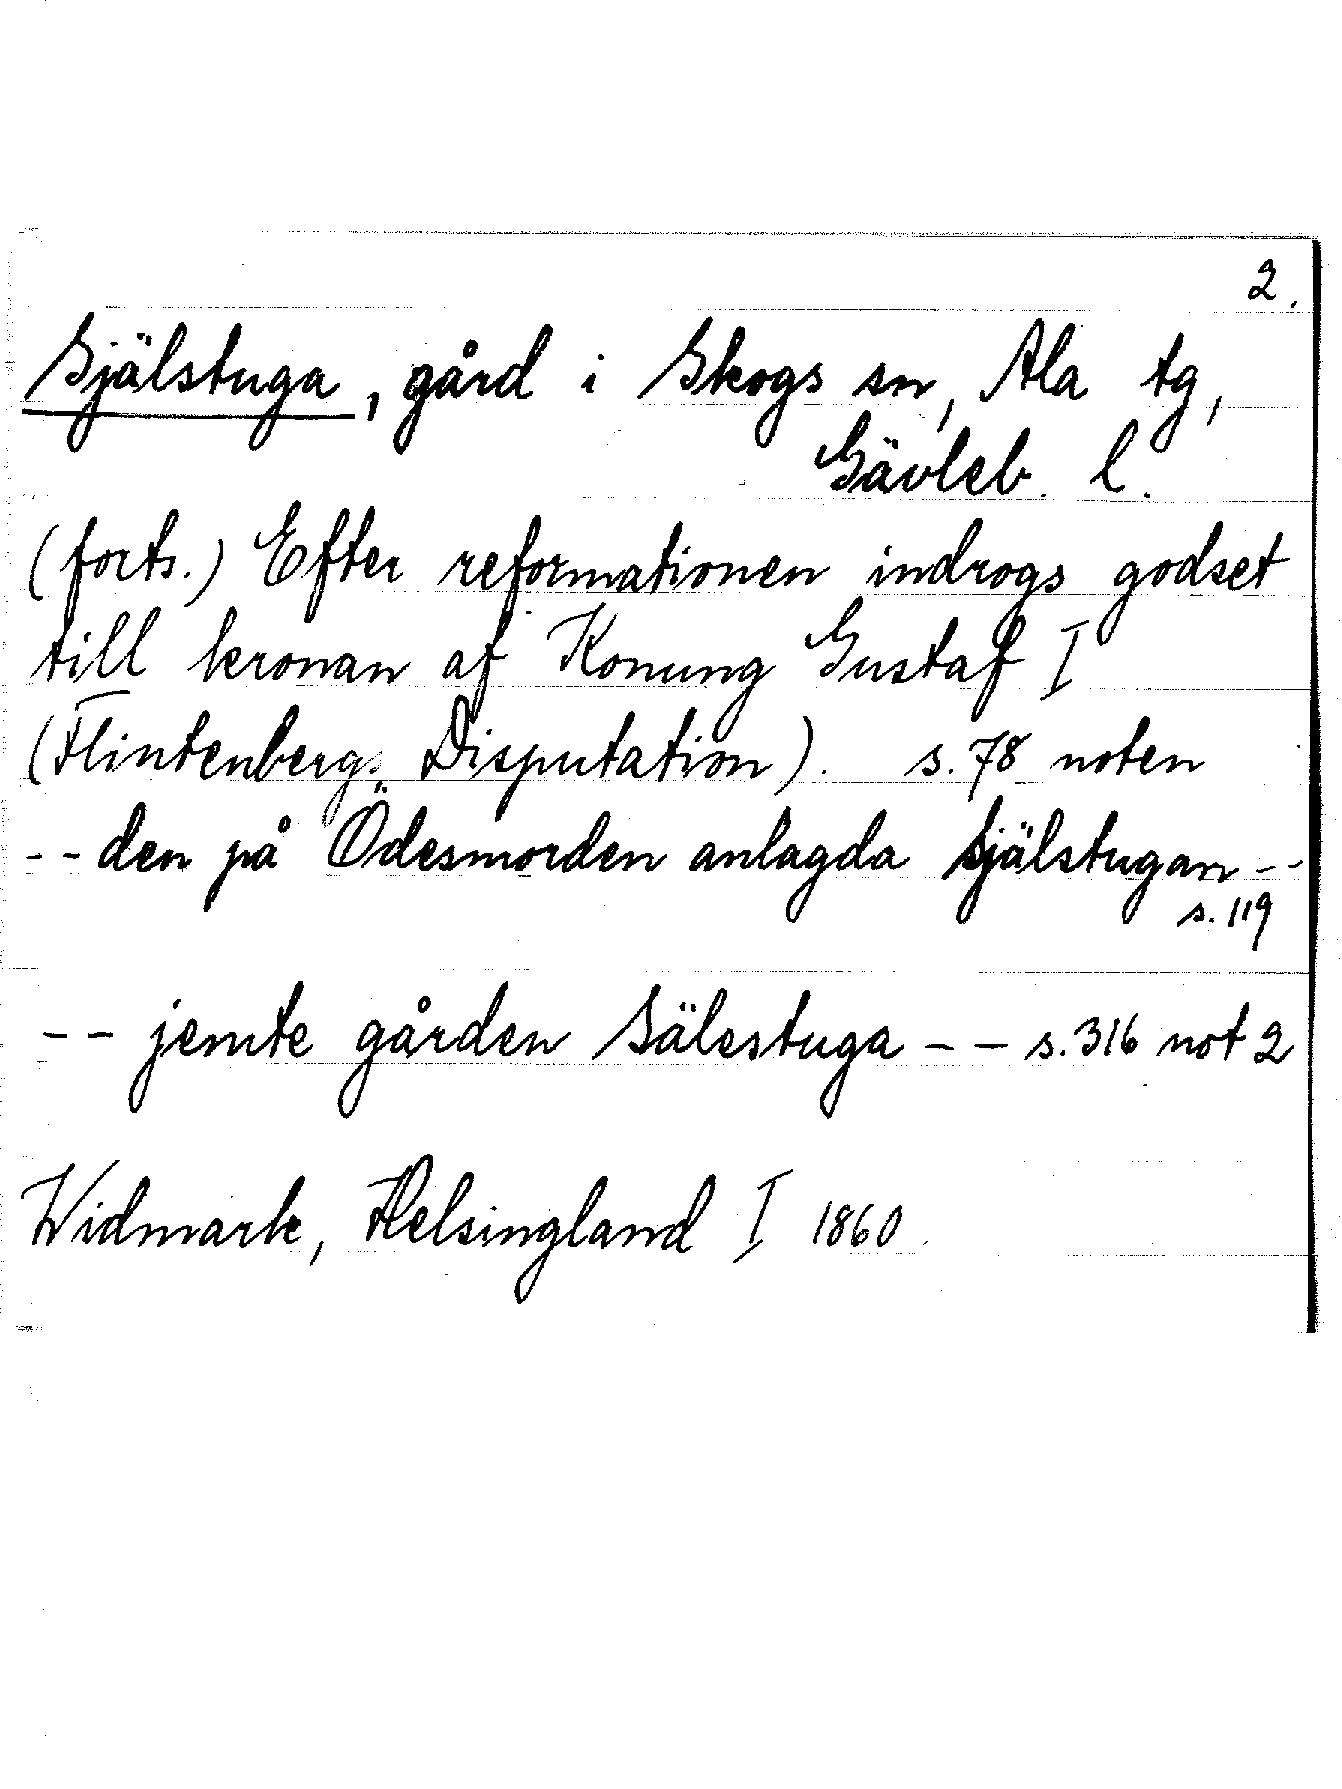 2.
Själstuga, gård i Skogs sn, Ala tg,
Gävleb. l.
(forts.) Efter reformationen indrogs godset
till kronan af Konung Gustaf I
(Flintenbergs Disputation). s. 78 noten
-- den på Ödesmorden anlagda själstugan --
s. 119
-- jemte gården Sälestuga -- s. 316 not 2
Widmark, Helsingland I 1860.